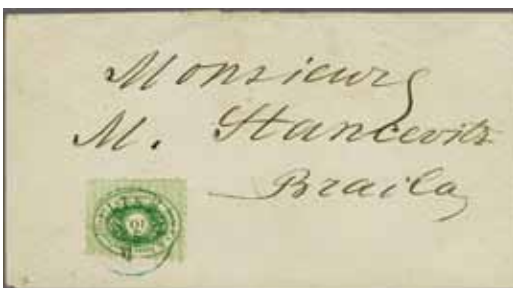 Monsieurs
M. Stancevitz
Braila
10